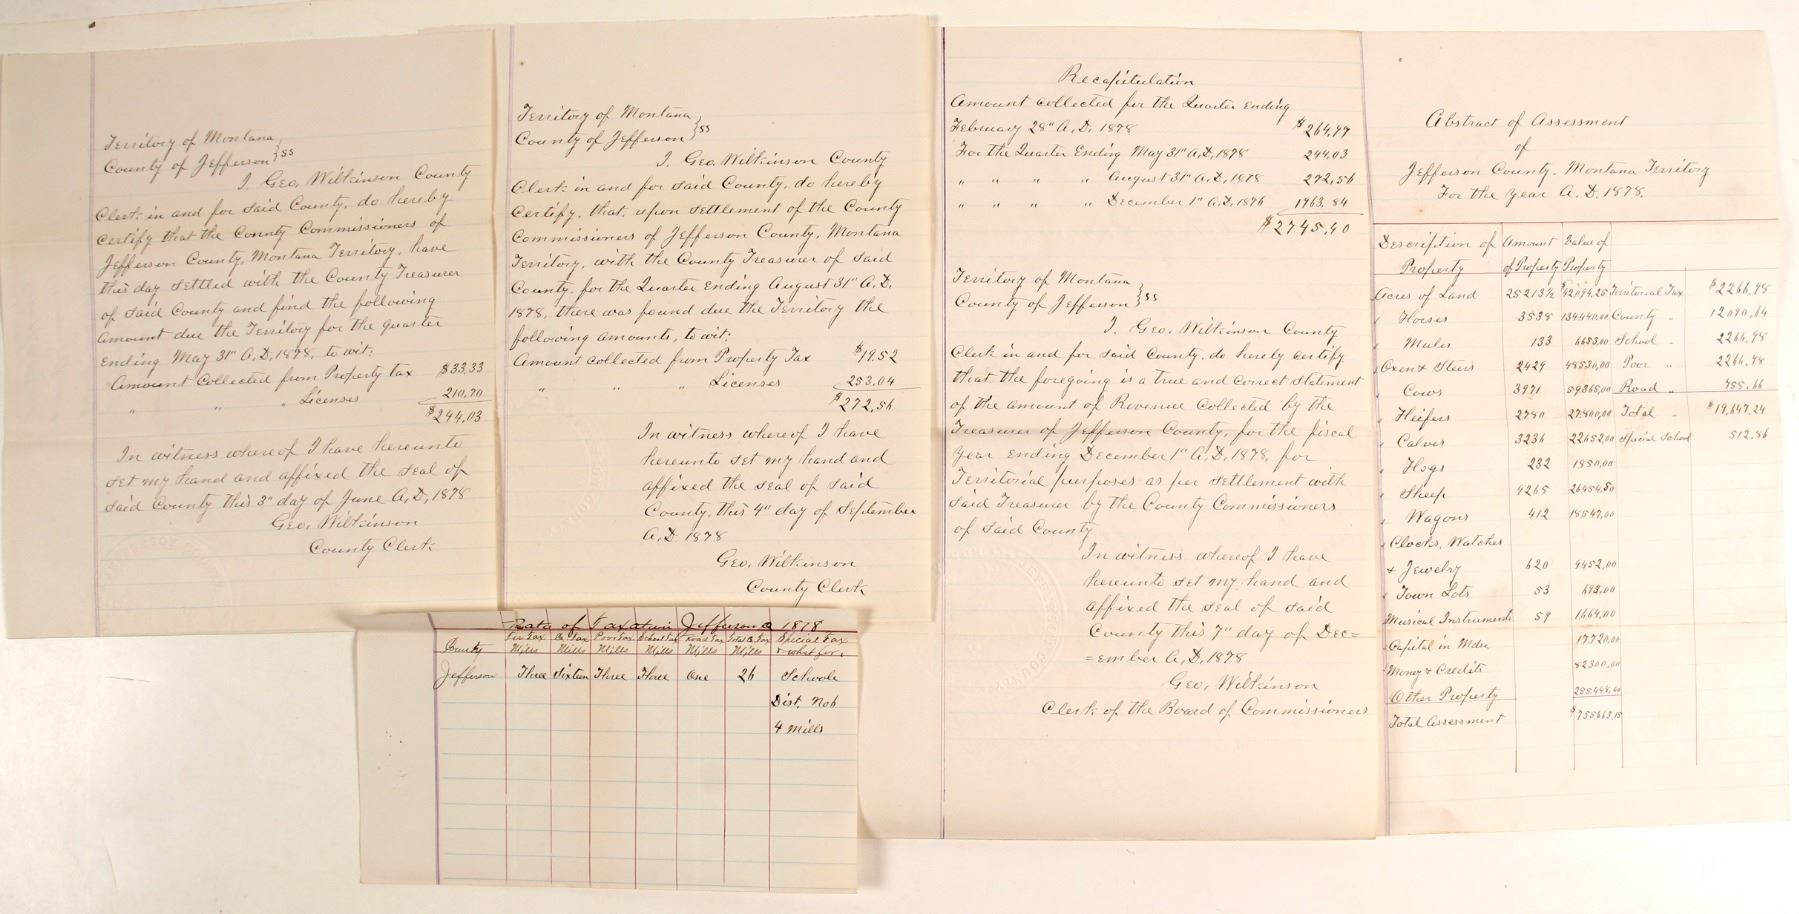 Territory of Montana
County of Jefferson } ss
I, Geo, Wilkinson County
Clerk in and for said County, do hereby
certify that the County Commissioners of
Jefferson County, Montana Territory, have
this day settled with the County Treasurer
of said County and find the following
amount due the Territory for the quarter
Ending May 31" A,D, 1878, to wit;
Amount Collected from Property tax $33,33
" " " Licenses 210,70
$244,03
In witness whereof I have hereunto
set my hand and affixed the seal of
said County this 3" day of June A,D, 1878
Geo, Wilkinson
County Clerk
Territory of Montana
County of Jefferson } ss
I, Geo. Wilkinson County
Clerk in and for said County, do hereby
Certify, that, upon settlement of the County
Commissioners of Jefferson County, Montana
Territory, with the County Treasurer of said
County, for the Quarter Ending August 31" A,D,
1878, there was found due the Territory the
following amounts, to wit;
Amount collected from Property Tax $19,52
" " " Licenses 253,04
$272,56
In witness whereof I have
hereunto set my hand and
affixed the seal of said
County, this 4" day of September
A,D. 1878
Geo, Wilkinson
County Clerk
Recapitulation
Amount collected for the Quarter Ending
February 28" A,D, 1878 $264,97
For the Quarter Ending May 31" A,D, 1878 244,03
" " " " August 31" A,D, 1878 272,56
" " " " December 1" A,D, 1878 1963,84
$2745,40
Territory of Montana
County of Jefferson } ss
I, Geo, Wilkinson County
Clerk in and for said County, do hereby certify
that the foregoing is a true and correct statement
of the amount of Revenue collected by the
Treasurer of Jefferson County, for the fiscal
year ending December 1" A,D, 1878, for
Territorial purposes as per settlement with
said Treasurer by the County Commissioners
of said County
In witness whereof I have
hereunto set my hand and
affixed the seal of said
County this 7" day of Dec=
=ember A,D, 1878
Geo, Wilkinson
Clerk of the Board of Commissioners
Abstract of Assessment
of
Jefferson County. Montana Territory
For the year A.D. 1878.
Description of Property Amount of Property Value of Property
Acres of Land 25213½ $42,094.25 Territorial Tax $2266,98
" Horses 3538 134440,00 County " 12090,64
" Mules 133 6653,00 School " 2266,98
" Oxen & Steers 2429 48530,00 Poor " 2266,98
" Cows 3971 59365,00 Road " 755,66
" Heifers 2780 27800,00 Total " $19,647,24
" Calves 3236 22652,00 Special School 512,86
" Hogs 232 1850,00
" Sheep 9265 26454,50
" Wagons 412 18547,00
" Clocks, Watches
& Jewelry 620 9452,00
" Town Lots 53 693,00
Musical Instruments 59 1,664,00
Capital in Mdse 17720,00
Money & Credits 82300,00
Other Property
Total Assessment $755663,15
Rate of Taxation Jefferson Co 1878
County Ter Tax Mills Co. Tax Mills Poor Tax Mills School Tax Mills Road Tax Mills Total Co. Tax Mills Special Tax & what for,
Jefferson Three Sixteen Three Three One 26 Schools
Dist. No6
4 Mills